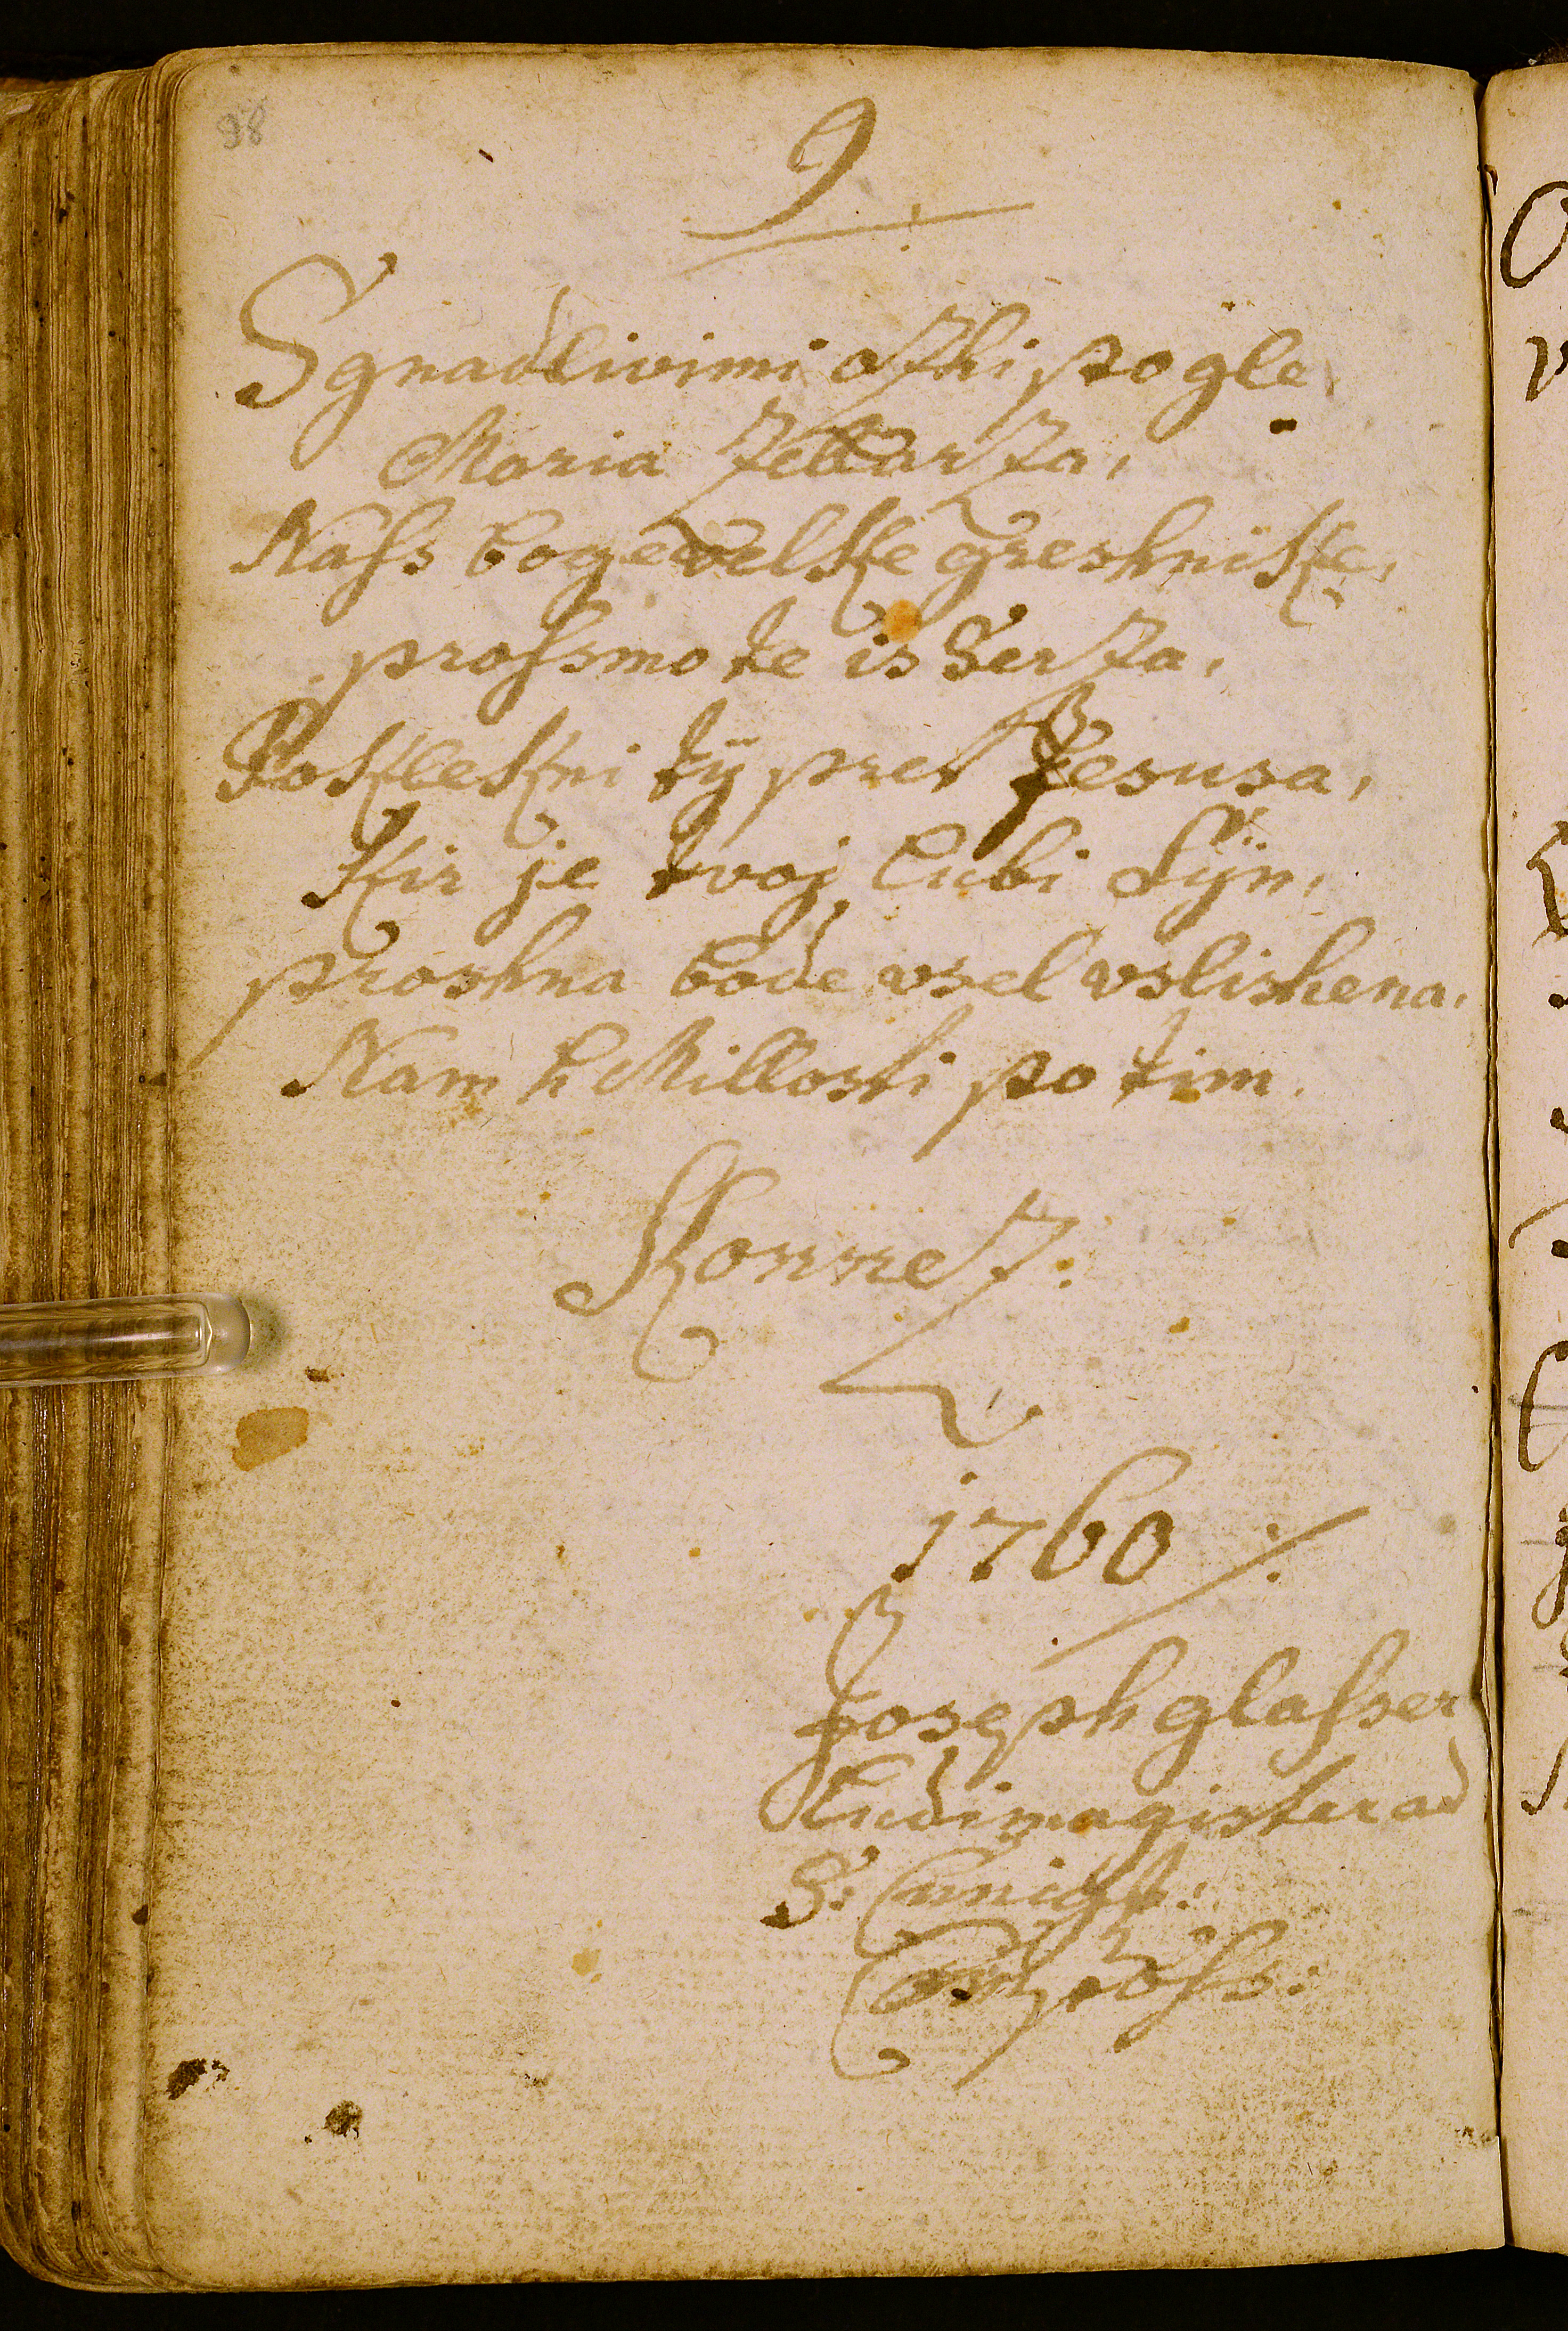 98
9
Sgnadlivimi ozhi pogle
Maria Zellarza,
Nass bogevelke greshnike,
prossmo te is Serza,
Poklekni tÿ pret Jesusa,
Kir je tvoj lubi Sÿn,
proshna bode vsel vslishena,
Nam h Millosti po tim.
Konnez:
1760 ⁒
Joseph glasser
Ludimagister ad
S: